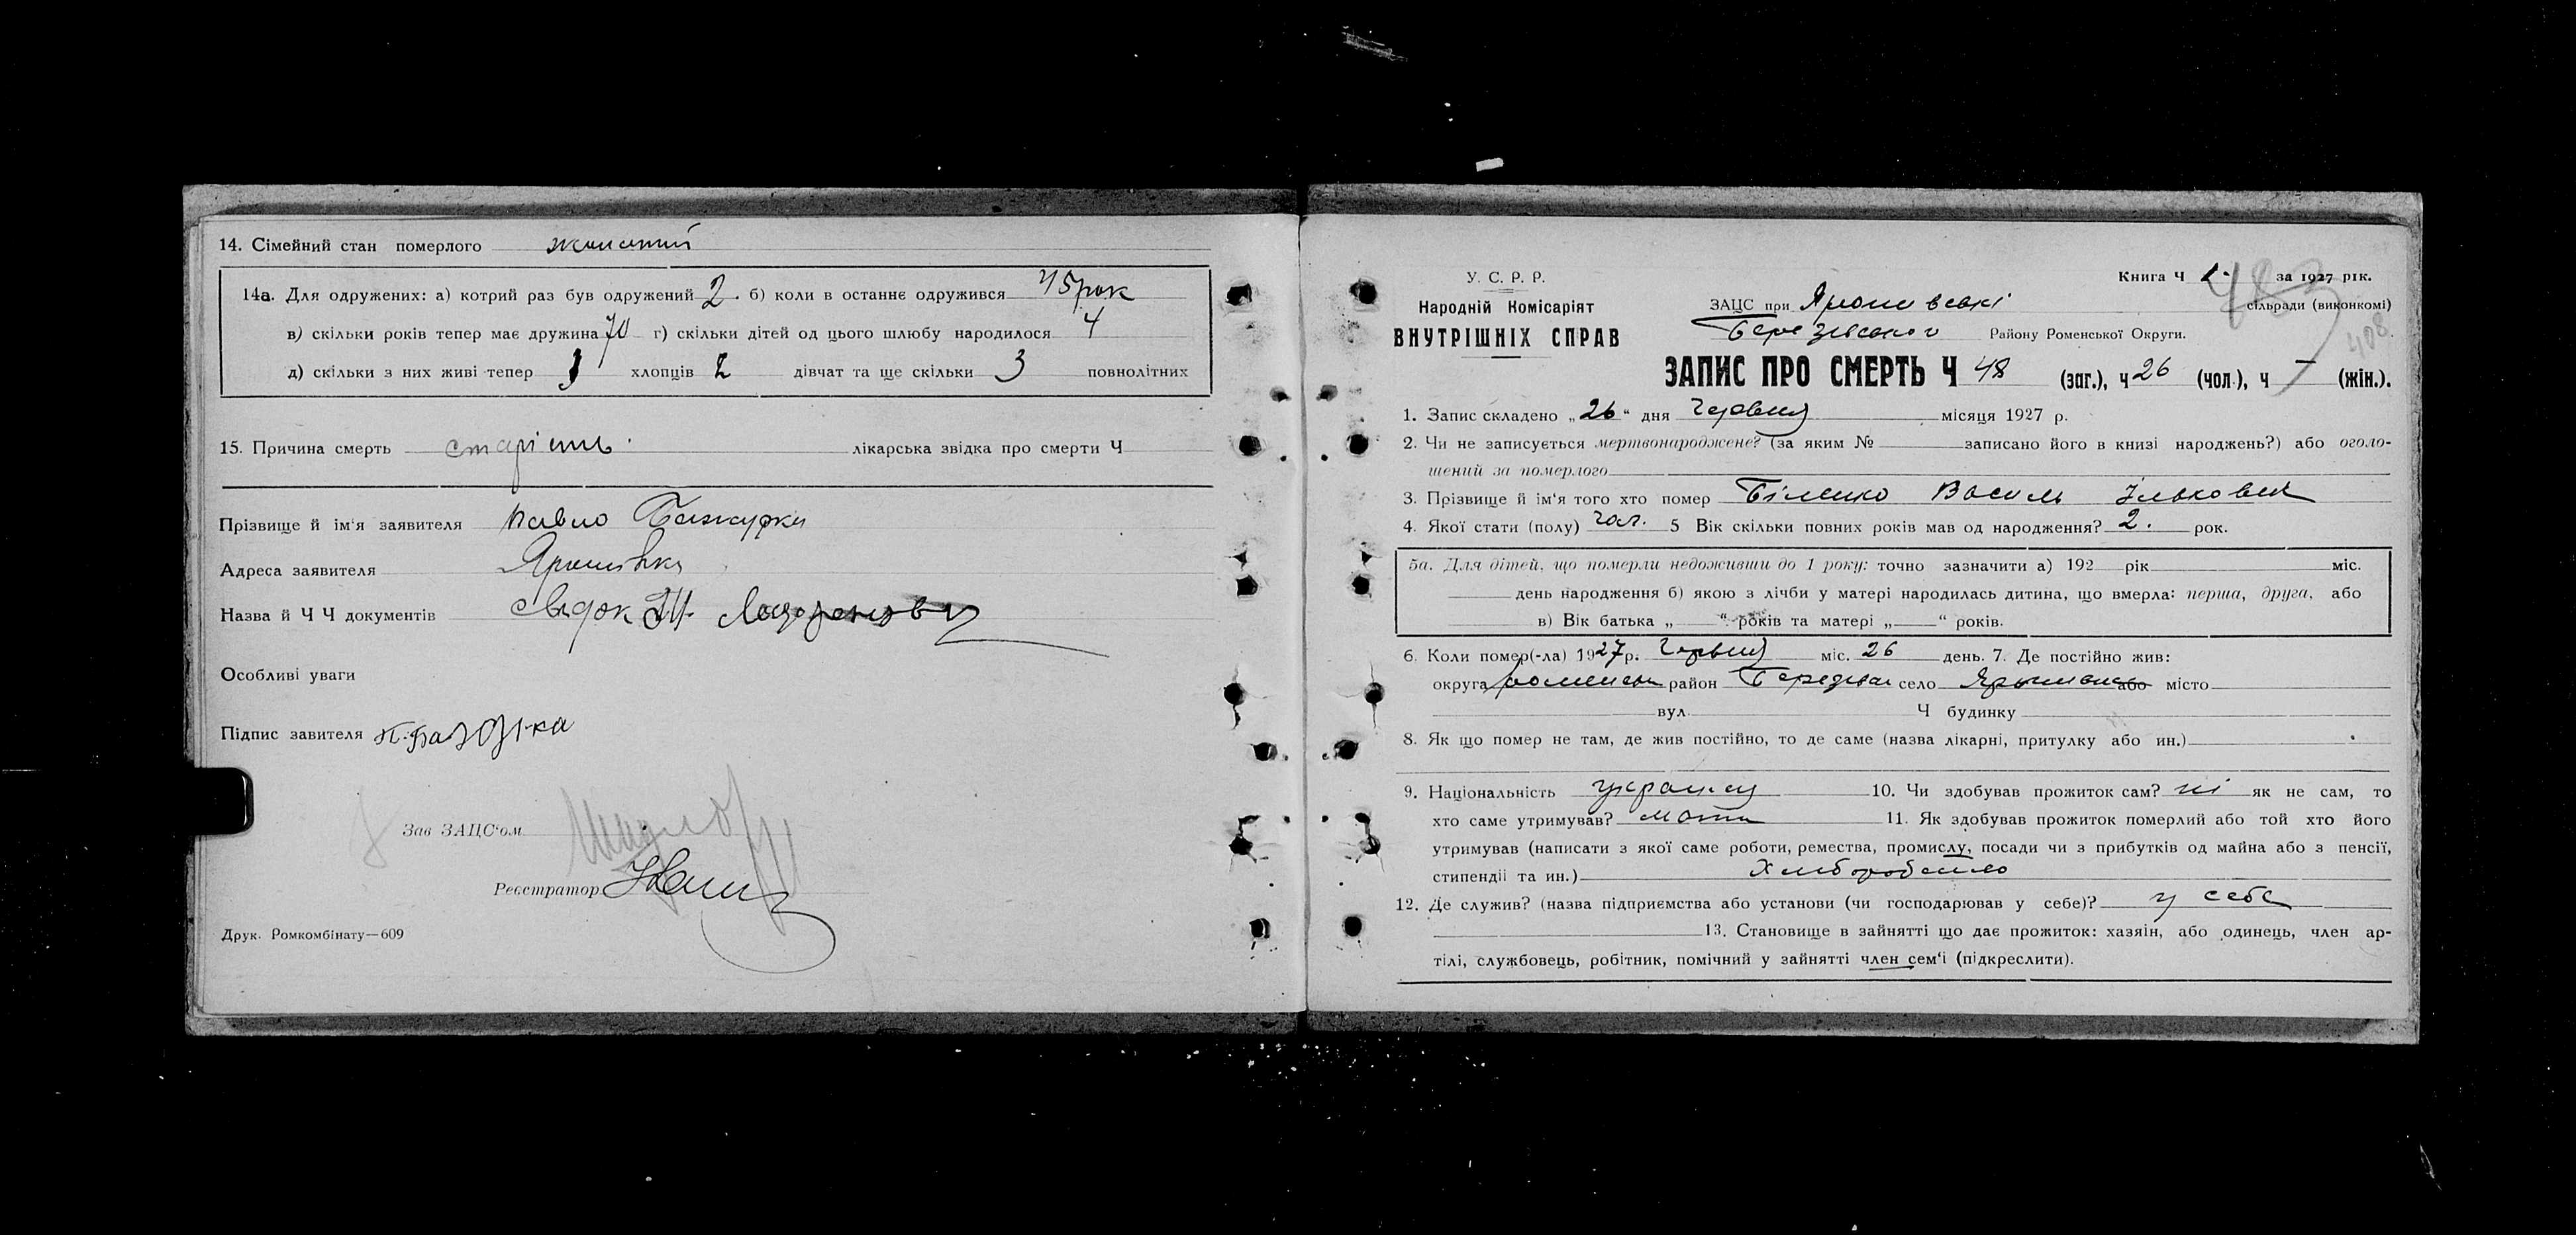 14. Сімейний стан померлого жонатий
14а. Для одружених: а) котрий раз був одружений 2. б) коли в останнє одружився 45 рок
в) скільки років тепер має дружина 70 г) скільки дітей од цього шлюбу народилося 4
д) скільки з них живі тепер 1 хлопців 2 дівчат та ще скільки 3 повнолітних
15. Причина смерть старість. лікарська звідка про смерти Ч
Прізвище й ім'я заявителя Павло
Адреса заявителя Ярошівка
Назва й Ч Ч документів свідок
Особливі уваги
Підпис завителя
Зав ЗАЦС'ом
Реєстратор
Друк. Ромкомбінату—609
У. С. Р. Р.
Народній Комісаріят
ВНУТРІШНІХ СПРАВ
Книга Ч за 1927 рік.
483
ЗАЦС при Ярошівські сільради (виконкомі)
Березівського Району Роменської Округи.
408
ЗАПИС ПРО СМЕРТЬ Ч 48 (заг.), ч 26 (чол.), ч — (жін.).
1. Запис складено „26“ дня Червня місяця 1927 р.
2. Чи не записується мертвонароджене? (за яким № записано його в книзі народжень?) або оголо-
шений за померлого
3. Прізвище й ім'я того хто помер Біленко Василь Ількович
4. Якої стати (полу) чол. 5 Вік скільки повних років мав од народження? 2. рок.
5а. Для дітей, що померли недоживши до 1 року: точно зазначити а) 192 рік міс.
день народження б) якою з лічби у матері народилась дитина, що вмерла: перша, друга, або
в) Вік батька „ “ років та матері „ “ років.
6. Коли помер(-ла) 1927р. Червня міс. 26 день. 7. Де постійно жив:
округа роменськ район Березівськ село Ярошівка або місто
вул. Ч будинку
8. Як що помер не там, де жив постійно, то де саме (назва лікарні, притулку або ин.)
9. Національність українец 10. Чи здобував прожиток сам? ні як не сам, то
хто саме утримував? мати 11. Як здобував прожиток померлий або той хто його
утримував (написати з якої саме роботи, ремества, промислу, посади чи з прибутків од майна або з пенсії,
стипендії та ин.) Хліборобством
12. Де служив? (назва підприємства або установи (чи господарював у себе)? у себе
13. Становище в зайнятті що дає прожиток: хазяін, або одинець, член ар-
тілі, службовець, робітник, помічний у зайнятті член сем'ї (підкреслити).